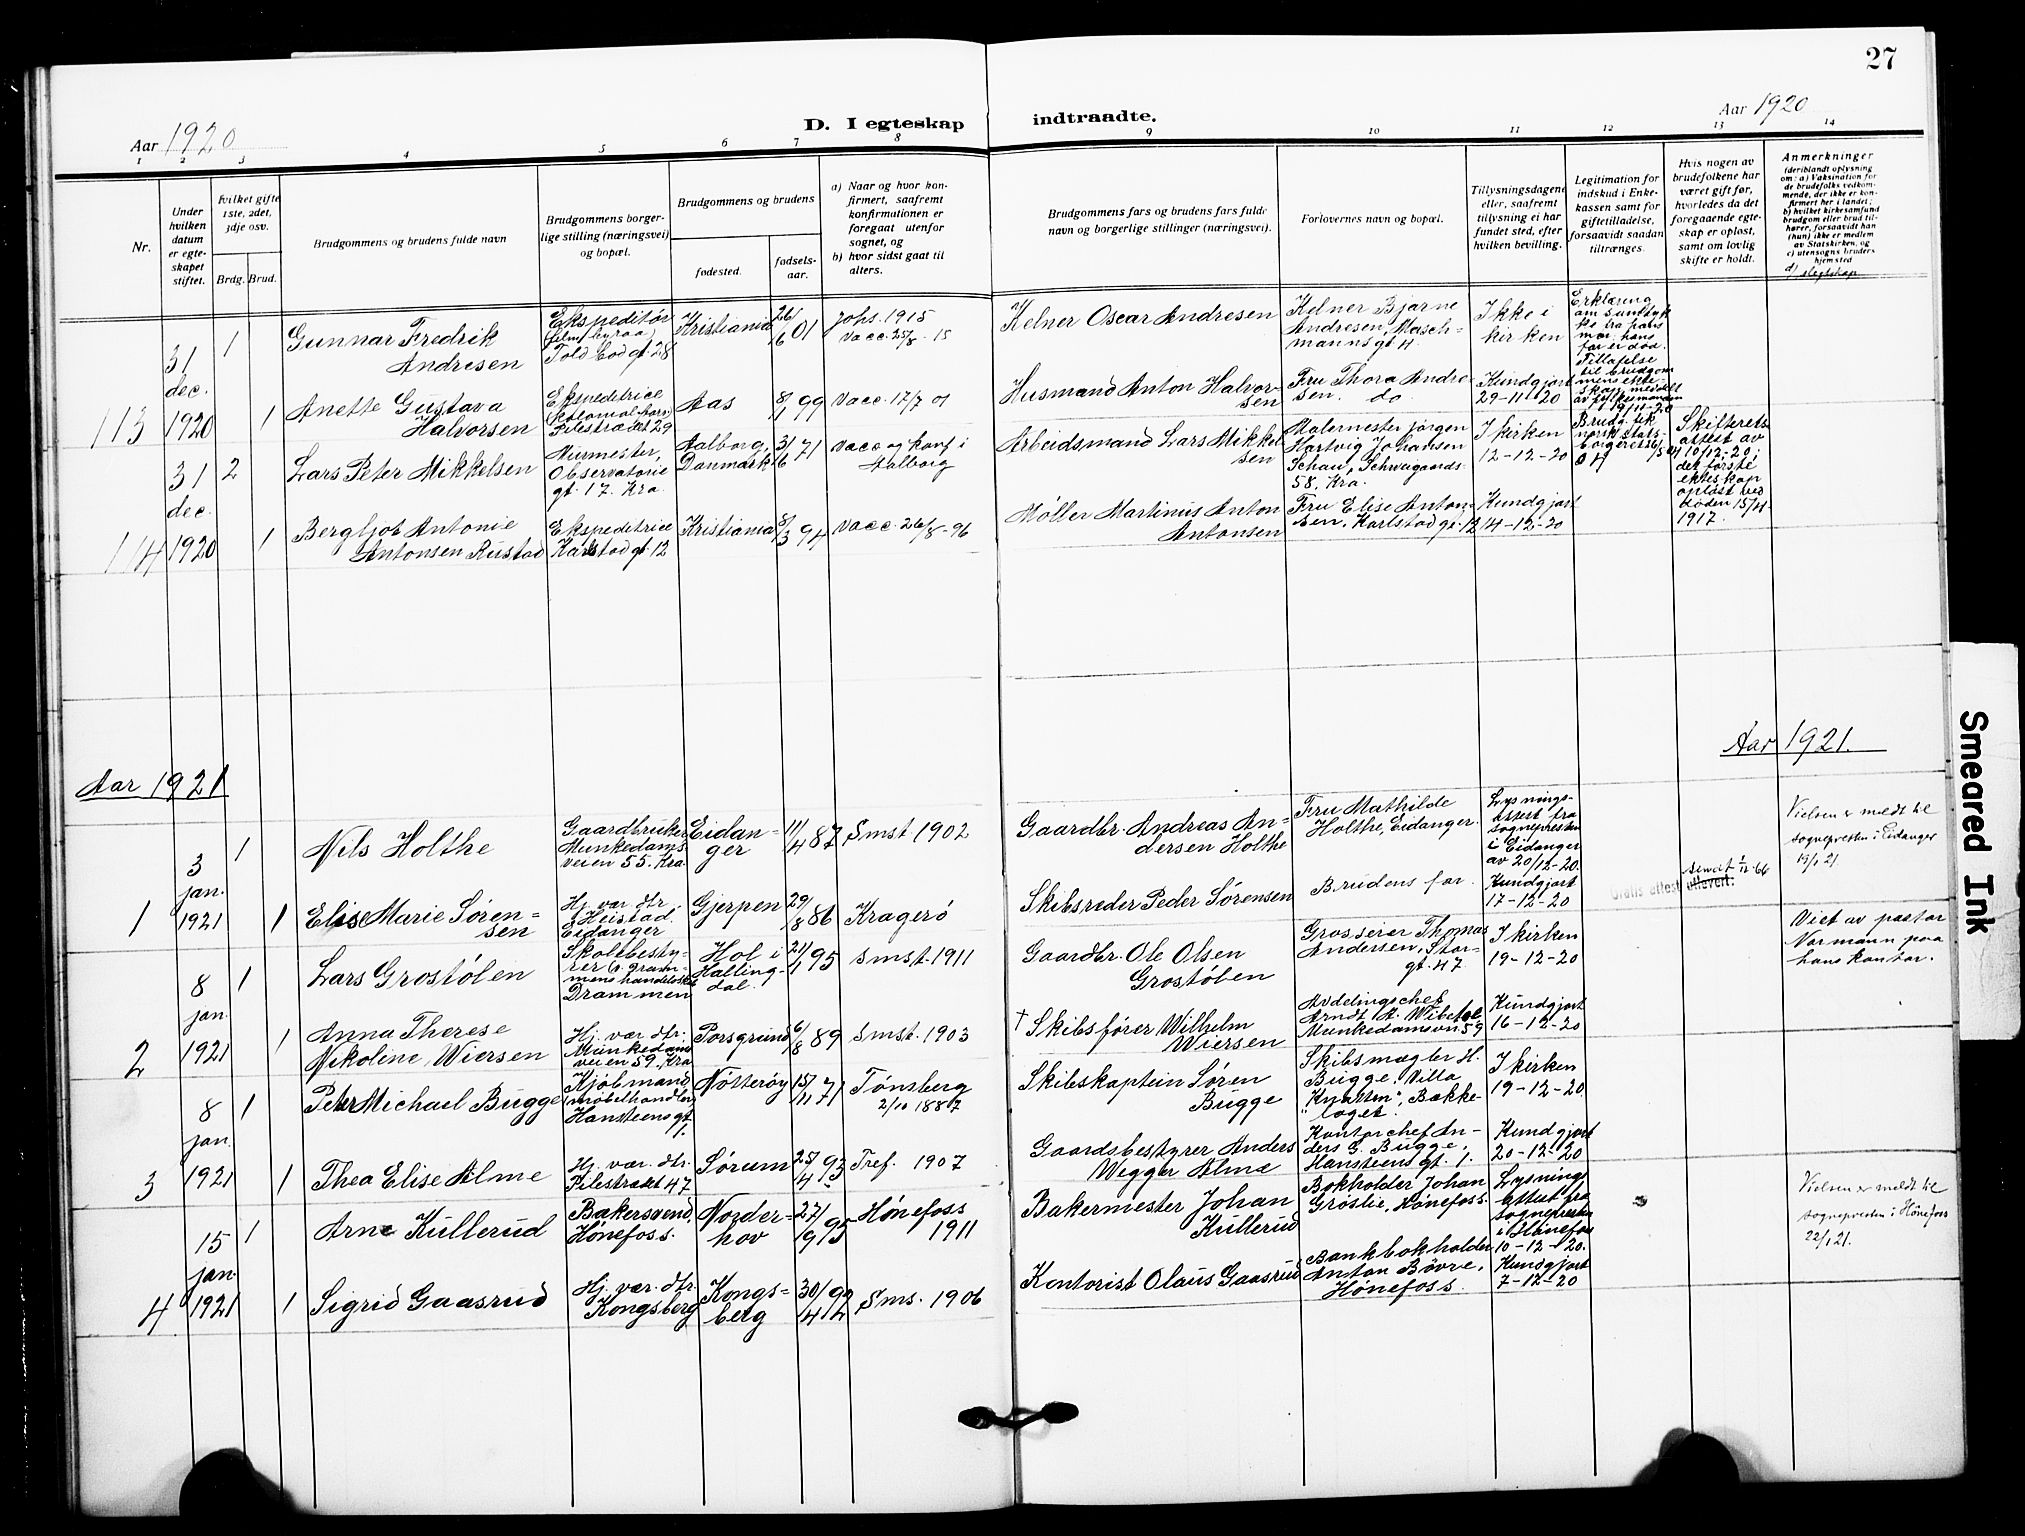 27
Aar 1920
D. I egteskap indtraadte.
Aar 1920
1 2 3 4 5 6 7 8 9 10 11 12 13 14
Nr.
Under
hvilken
datum
er egte-
skapet
stiftet.
Hvilket gifte
1ste, 2det,
3dje osv.
Brdg. Brud.
Brudgommens og brudens fulde navn
Brudgommens borger-
lige stilling (næringsvei)
og bopæl.
Brudgommens og brudens
fødested.
fødsels-
aar.
a) Naar og hvor kon-
firmert, saafremt
konfirmationen er
foregaat utenfor
sognet, og
b) hvor sidst gaat til
alters.
Brudgommens fars og brudens fars fulde
navn og borgerlige stillinger (næringsvei).
Forlovernes navn og bopæl.
Tillysningsdagene
eller, saafremt
tillysning ei har
fundet sted, efter
hvilken bevilling.
Legitimation for
indskud i Enke-
kassen samt for
giftetilladelse,
forsaavidt saadan
tiltrænges.
Hvis nogen av
brudefolkene har
været gift før,
hvorledes da det
foregaaende egte-
skap er opløst,
samt om lovlig
skifte er holdt.
Anmerkninger
(deriblandt oplysning
om: a) Vaksination for
de brudefolks vedkom-
mende, der ikke er kon-
firmert her i landet;
b) hvilket kirkesamfund
brudgom eller brud til-
hører, forsaavidt han
(hun) ikke er medlem
av Statskirken, og
c) utensogns bruders
hjemsted
d) slegtskap
113
31
dec.
1920
1
Gunnar Fredrik
Andresen
Ekspeditør
(filmbyraa)
Toldbodgt. 28
Kristiania
26/6 01
Johs. 1915
Vacc. 25/8 - 15
Kelner Oscar Andresen
Kelner Bjarne
Andresen, Masch-
mannsgt 4.
Ikke i
kirken
Erklæring
om samtyk
ke fra hans
mor, hans
far er død.
Tillatelse
til brudgom
mens ekte-
skap meddelt
av fylkesmannen
19/11-20
1
Anette Gustava
Halvorsen
Ekspedetrice
Pilestrædet 29
Aas
8/1 99
Vacc. 17/7 01
Husmand Anton Halvor-
sen
Fru Thora Andre-
sen. do
Kundgjort
29-11-20
114
31
dec.
1920
2
Lars Peter Mikkelsen
Murmester,
Observatorie
gt. 17. Kra.
Aalborg,
Danmark
31/6 71
Vacc og konf i
Aalborg
Arbeidsmand Lars Mikkel
sen
Malermester Jörgen
Hartvig Johansen
Schau, Schweigaards.
58. Kra.
I kirken
12-12-20
Brudg. fik
norsk stats-
borgerret
Skifterets
attest av
10/12-20;
det første
ekteskap
opløst ved
døden 15/4
1917.
1
Bergljot Antonie
Antonsen Rustad
Ekspedetrice
Karlstadgt. 12
Kristiania
5/3 94
Vacc. 26/8-96
Møller Martinus Anton
Antonsen
Fru Elise Anton-
sen, Karlstadgt. 12
Kundgjort
14-12-20
Aar 1921
Aar 1921.
1
3
jan.
1921
1
Nils Holthe
Gaardbruker
Munkedams
veien 55. Kra.
Eidan-
ger
11/4 87
Smst 1902
Gaardbr. Andreas An-
dersen Holthe
Fru Mathilde
Holthe, Eidanger.
Lysnings-
attest fra
sognepresten
i Eidanger
av 20/12-20.
Vielsen er meldt til
sognepresten i Eidanger
1
Elise Marie Søren-
sen
Hj. vær. dtr.
Heistad.
Eidanger
Gjerpen
29/8 86
Kragerö
Skibsreder Peder Sørensen
Brudens far.
Kundgjort
17-12-20
Gratis attest utlevert:
2
8
jan.
1921
1
Lars Grostölen
Skolebesty-
rer
Drammen
Hol i
Halling-
dal.
21/1 95
smst. 1911
Gaardbr. Ole Olsen
Grostölen
Grosserer Thomas
Andersen, Stor-
gt. 47.
I kirken
19-12-20
Viet av pastor
Normann paa
hans kontor.
1
Anna Therese
Nikoline Wiersen
Hj. vær. dtr.
Munkedams
veien 59. Kra
Porsgrund
6/8 89
smst. 1903
† Skibsfører Wilhelm
Wiersen
Avdelingschef
Arndt A. Wibetoe
Munkedamsvn 59
Kundgjort
16-12-20
3
8
jan.
1921
1
Peter Michael Bugge
Kjöbmand,
(møbelhandler)
Hansteensgt.
1.
Nötteröy
15/11 71
Tønsberg
2/10 1887
Skibskaptein Søren
Bugge
Skibsmægler H.
Bugge. Villa
"Knatten", Bække-
laget.
I kirken
19-12-20.
1
Thea Elise Alme
Hj. vær. dtr.
Pilestrædet 47
Sørum
25/4 93
Tref. 1907
Gaardsbestyrer Anders
Wegger Alme
Kontorchef An-
ders G. Bugge,
Hansteensgt. 1.
Kundgjort
20-12-20
4
15
jan.
1921
1
Arne Kullerud
Bakersvend,
Hönefoss.
Norder-
hov
27/9 95
Hönefoss
1911
Bakermester Johan
Kullerud
Bokholder Johan
Grøslie, Hönefoss.
Lysnings
attest fra
sognepresten
i Hönefoss
10-12-20.
Vielsen er meldt til
sognepresten i Hönefoss
1
Sigrid Gaasrud
Hj. vær. dtr.
Kongsberg
Kongs-
berg
30/4 92
Sms. 1906
Kontorist Olaus Gaasrud
Bankbokholder
Anton Bövre,
Hönefoss.
Kundgjort
7-12-20
Smeared Ink